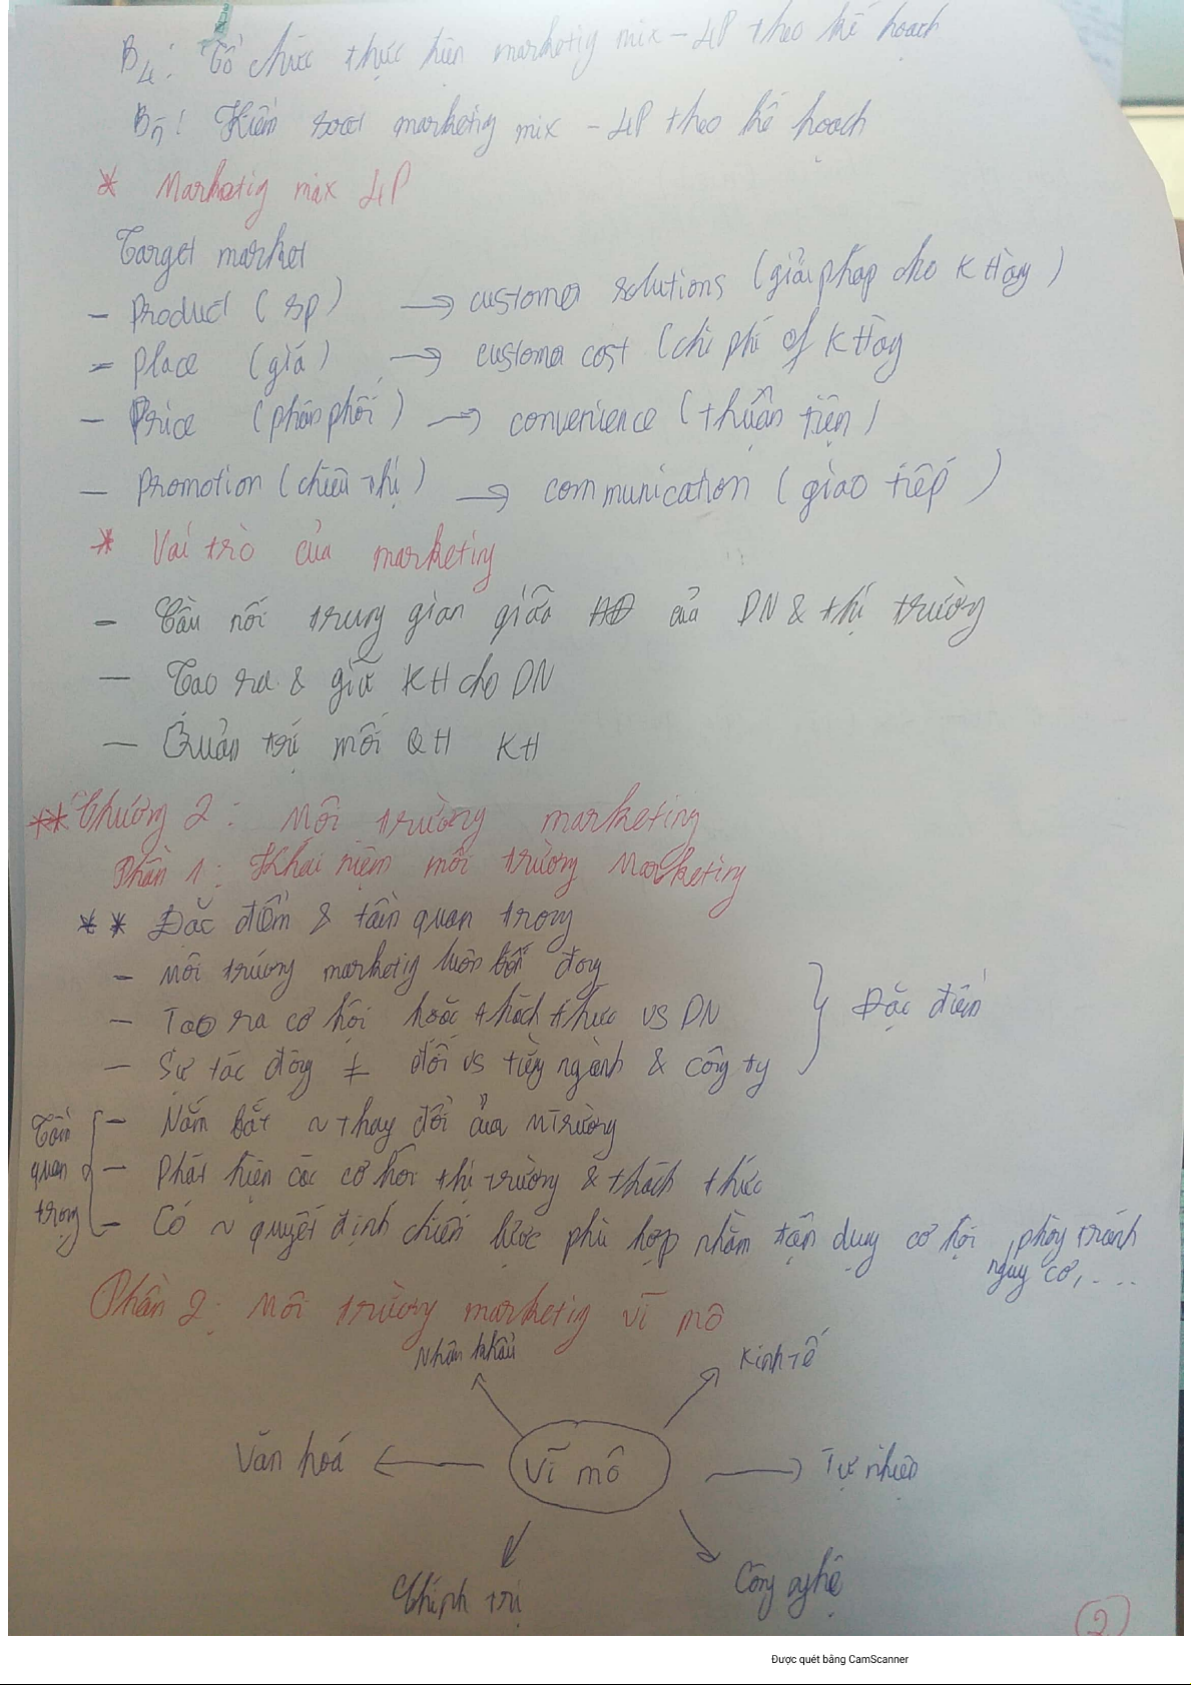 B4: Tổ chức thực hiện marketig mix - 4P theo kế hoạch
B5: Kiểm soát marketig mix - 4P theo kế hoạch
* Marketig mix 4P
Target market
- Product (sp) → customer solutions (giải pháp cho KHàng)
- Place (giá) → customer cost (chi phí of KHàng
- Price (phân phối) → convenience (thuận tiện)
- Promotion (chiêu thị) → communication (giao tiếp)
* Vai trò của marketing
- Cầu nối trung gian giữa HĐ của DN & thị trường
- Tạo ra & giữ KH cho DN
- Quản trị mối QH KH
** Chương 2: Môi trường marketing
Phần 1: Khái niệm môi trường Marketing
** Đặc điểm & tầm quan trọng
- Môi trường marketig luôn biến động
- Tạo ra cơ hội hoặc thách thức vs DN } Đặc điểm
- Sự tác động ≠ đối vs từng ngành & công ty
Tầm quan trọng
- Nắm bắt ~ thay đổi của mtrường
- Phát hiện các cơ hội thị trường & thách thức
- Có ~ quyết định chiến lược phù hợp nhằm tận dụng cơ hội, phòng tránh
nguy cơ, ....
Phần 2: Môi trường marketig vĩ mô
Nhân khẩu
Kinh tế
Văn hoá
Vĩ mô
Tự nhiên
Chính trị
Công nghệ
2
Được quét bằng CamScanner